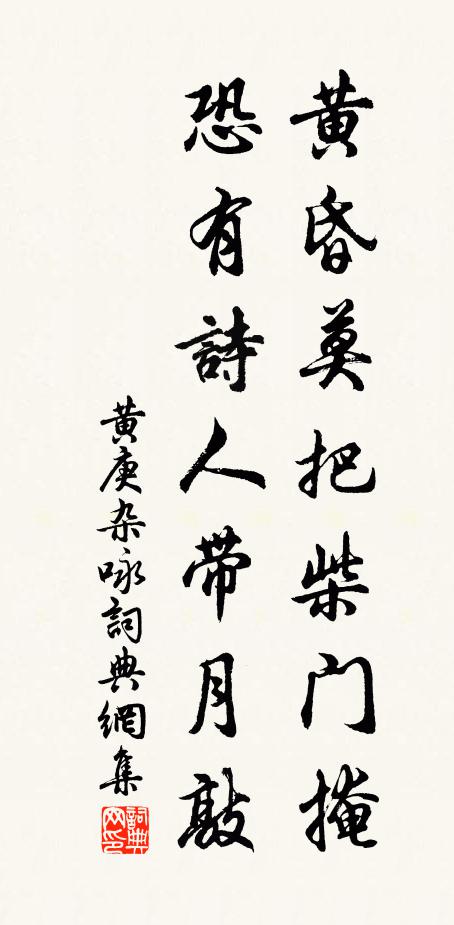 黄昏莫把柴门掩
恐有詩人带月敲
黄庚杂咏詞典網集
詞典网印